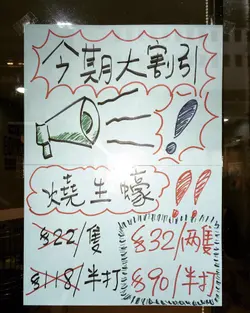 今期大割引
!
燒生蠔!!
$22/隻
$32/両隻
$118/半打
$90/半打